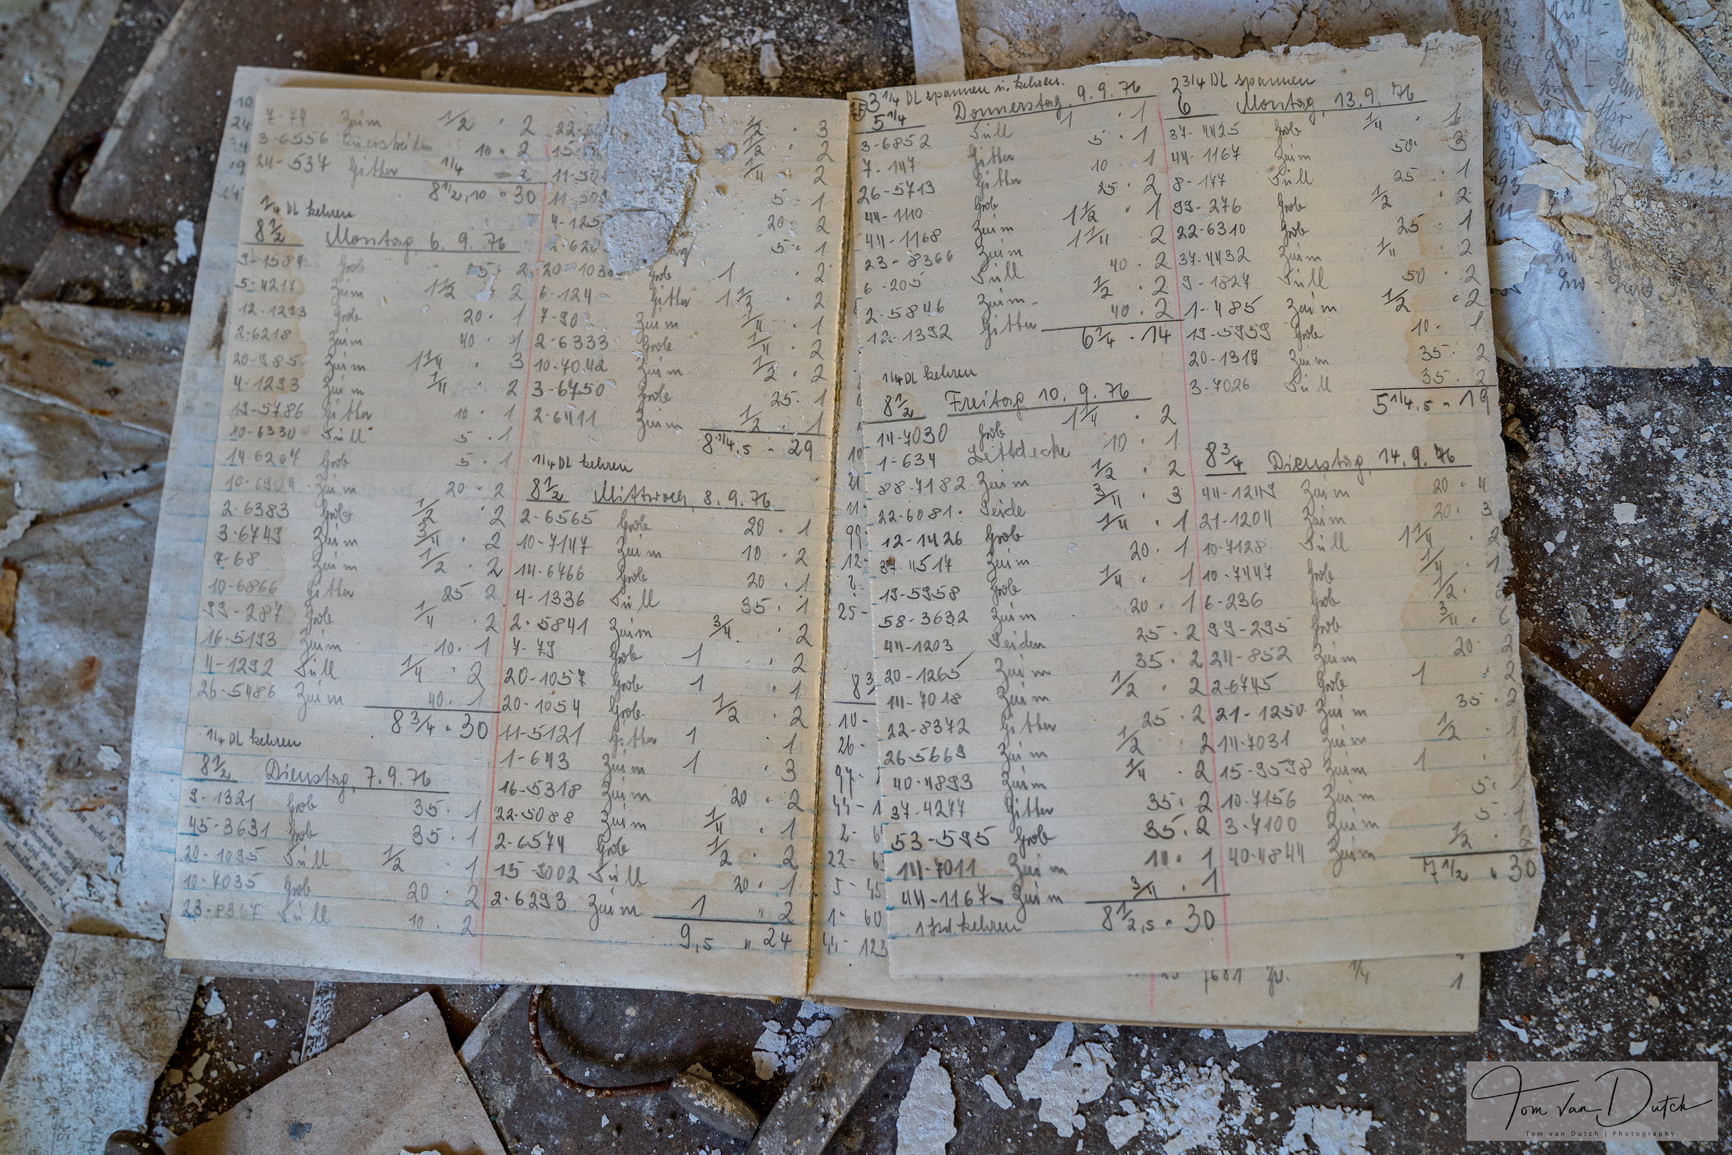 7-79 Zwirn 1/2 · 2
3-6556 Querstreifen 10 · 2
24-537 Gitter 1/4 2
8 1/2, 10 · 30
1/4 DL kehren
8 1/2 Montag, 6.9.76
9-1584 Grob 2
5-4217 Zwirn 1 1/2 · 2
12-1293 Grob 20 · 1
2-6218 Zwirn 40 · 1
20-985 Zwirn 1 1/4 · 3
4-1293 Zwirn 1/4 · 2
19-5786 Gitter 10 · 1
10-6330 Tüll 5 · 1
14-6267 Grob 5 · 1
Zwirn 20 · 2
2-6383 Grob 1/2 · 2
3-6749 Zwirn 3/4 · 2
7-68 Zwirn 1/2 · 2
10-6866 Gitter 25 · 2
99-287 Grob 1/4 · 2
16-5193 Zwirn 10 · 1
4-1292 Tüll 1/4 · 2
26-5486 Zwirn 40 · 1
8 3/4 · 30
1/4 DL kehren
8 1/2 Dienstag, 7.9.76
9-1321 Grob 35 · 1
45-3631 Grob 35 · 1
20-1095 Tüll 1/2 · 1
10-7035 Grob 20 · 2
23-8367 Tüll 10 · 2
1/2 · 3
1/2 · 2
1/4 · 2
5 · 1
4-125 20 · 2
2-620 5 · 1
Grob 1 · 2
6-124 Gitter 1 1/2 · 2
7-90 Zwirn 3/4 · 1
2-6333 Grob 1/4 · 2
10-7042 Zwirn 1/2 · 2
3-6750 Grob 25 · 1
2-6411 Zwirn 1/2 · 1
29
1/4 DL kehren
8 1/2 Mittwoch, 8.9.76
2-6565 Grob 20 · 1
10-7147 Zwirn 10 · 2
14-6766 Grob 20 · 1
4-1336 Tüll 35 · 1
2-5841 Zwirn 3/4 · 2
7-79 Grob 1 · 2
20-1057 Grob 1 · 1
20-1054 Grob 1/2 · 2
11-5121 Gitter 1 · 1
1-643 Zwirn 1 · 3
16-5318 Zwirn 20 · 2
22-5088 Zwirn 1/4 · 1
2-6574 Grob 1/2 · 2
15-3002 Tüll 20 · 1
2-6293 Zwirn 1 " 2
9,5 " 24
3 1/4 DL spannen u. kehren
5 1/4 Donnerstag, 9.9.76
3-6852 Tüll 1 · 1
7-147 Gitter 5 · 1
26-5713 Gitter 10 · 1
44-1110 Grob 25 · 2
44-1168 Zwirn 1 1/2 · 1
23-8366 Zwirn 1 1/4 · 2
6-205 Tüll 40 · 2
2-5846 Zwirn 1/2 · 2
12-1392 Gitter 40 · 2
6 3/4 · 14
1/4 DL kehren
8 1/2 Freitag, 10.9.76
14-7030 Grob 1 1/4 · 2
1-634 Bettdecke 10 · 1
88-7182 Zwirn 1/2 · 2
22-6081 Seide 3/4 · 3
12-1426 Grob 1/4 · 1
37-4514 Zwirn 20 · 1
19-5958 Grob 1/4 · 1
58-3632 Zwirn 20 · 1
44-1203 Seiden 25 · 2
20-1265 Zwirn 35 · 2
14-7018 Zwirn 1/2 · 2
22-8372 Gitter 25 · 2
26-5669 Zwirn 1/2 · 2
40-4893 Zwirn 1/4 · 2
37-4277 Gitter 35 · 2
53-595 Grob 35 · 2
14-7011 Zwirn 10 · 1
44-1167 Zwirn 3/4 · 1
1 Std. kehren 8 1/2,5 · 30
2 3/4 DL spannen
6 Montag, 13.9.76
37-4425 Grob 1/4 · 1
44-1167 Zwirn 50 · 3
8-177 Tüll 25 · 1
99-276 Grob 1/2 · 2
22-6310 Grob 25 · 1
37-4432 Zwirn 1/4 · 2
9-1827 Tüll 50 · 2
1-485 Zwirn 1/2 · 2
19-5959 Grob 10 · 1
20-1319 Zwirn 35 · 2
3-7026 Tüll 35 · 2
5 1/4,5 · 19
8 3/4 Dienstag, 14.9.76
44-1249 Zwirn 20 · 4
21-1204 Zwirn 20 · 3
10-7128 Tüll 1 1/4 · 2
10-7447 Grob 1/4 · 1
6-236 Grob 1/2 ·
99-295 Grob 3/4 ·
24-852 Zwirn 20 · 2
2-6745 Grob 1 · 2
21-1250 Zwirn 35 · 2
14-7031 Zwirn 1/2 · 1
15-9598 Zwirn 1
10-7156 Zwirn 5 · 1
3-7100 Zwirn 5 · 1
40-4844 Zwirn 1/2 · 2
7 1/2 · 30
Tom van Dutch
Tom van Dutch | Photography